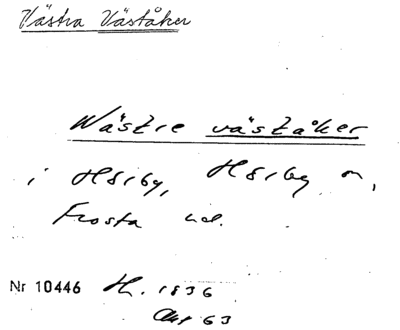 Västra Väståker
Wästre väståker
i Hörby, Hörby sn,
Frosta hd.
Nr 10446 H. 1836
Akt 63